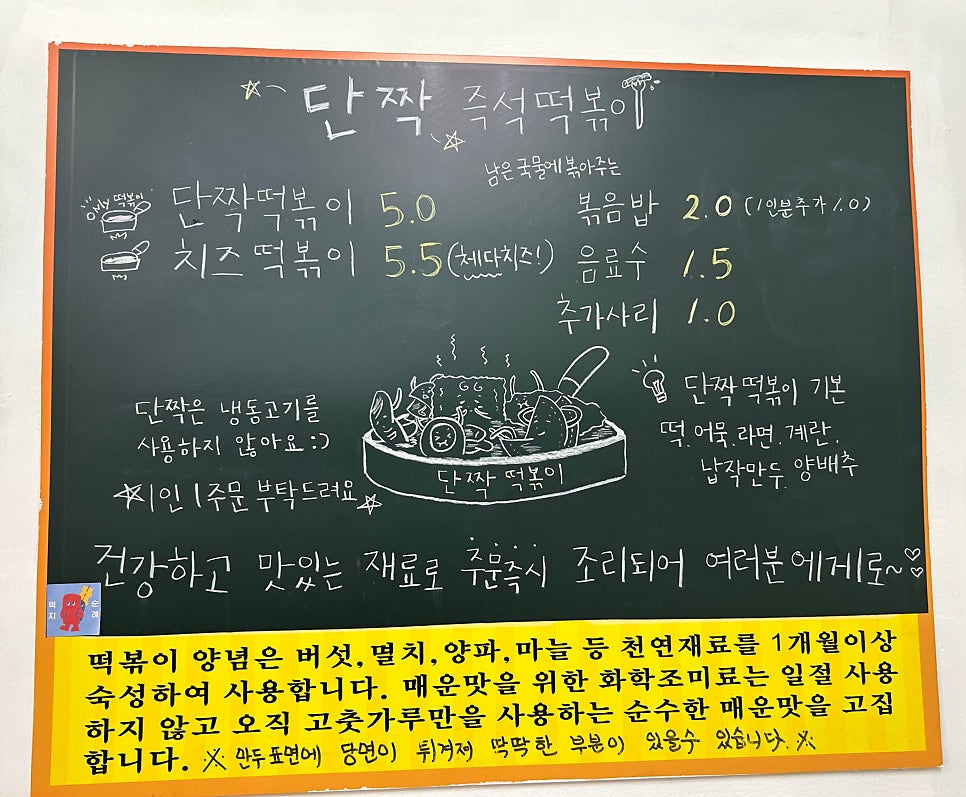 단짝 즉석떡볶이
남은 국물에 볶아주는
OMy 떡볶이
단짝떡볶이 5.0
볶음밥 2.0 (1인분추가 1.0)
치즈떡볶이 5.5 (체다치즈!)
음료수 1.5
추가사리 1.0
단짝은 냉동고기를
사용하지 않아요 :)
☆1인 1주문 부탁드려요☆
단짝 떡볶이
단짝 떡볶이 기본
떡. 어묵. 라면. 계란.
납작만두. 양배추
건강하고 맛있는 재료로 주문즉시 조리되어 여러분에게로~♡♡
떡 순
지 례
떡볶이 양념은 버섯, 멸치, 양파, 마늘 등 천연재료를 1개월이상
숙성하여 사용합니다. 매운맛을 위한 화학조미료는 일절 사용
하지 않고 오직 고춧가루만을 사용하는 순수한 매운맛을 고집
합니다. ※ 만두표면에 당면이 튀겨져 딱딱한 부분이 있을수 있습니다. ※